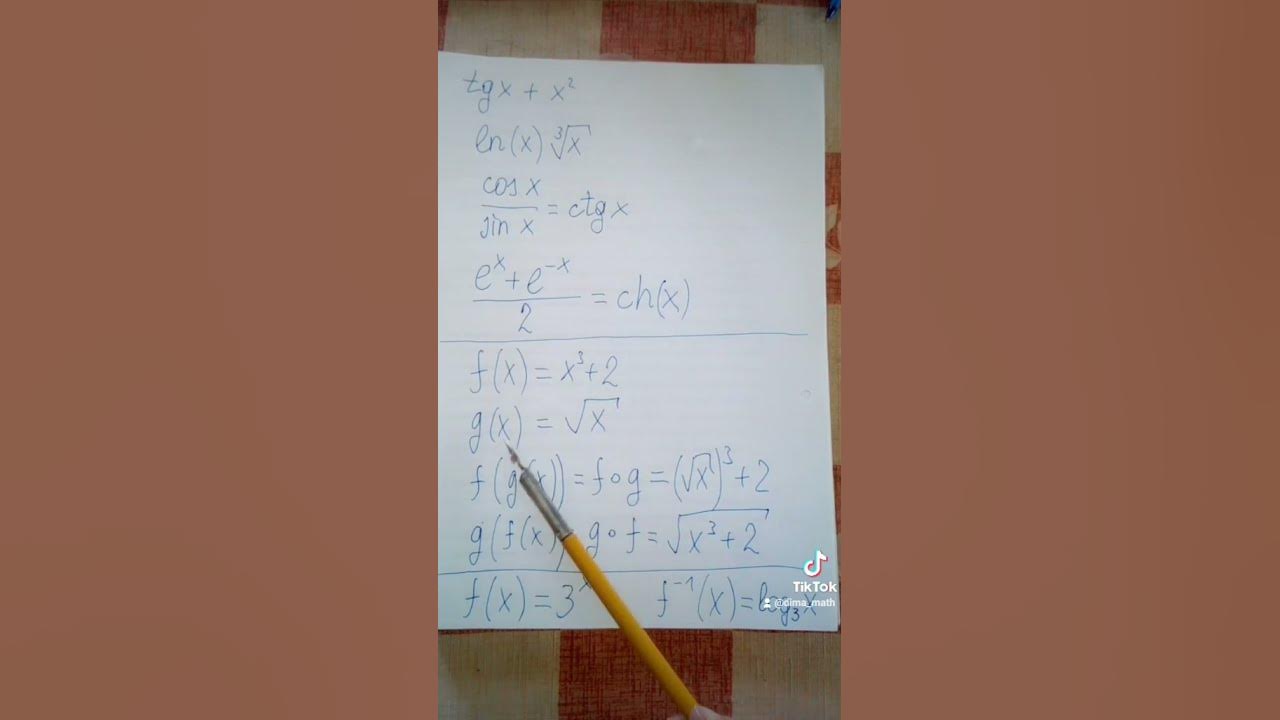 tgx + x²
ln(x) ∛x
cos x
sin x
= ctgx
eˣ + e⁻ˣ
2
= ch(x)
f(x) = x³+2
g(x) = √x
f(g(x)) = f∘g = (√x)³+2
g(f(x)) g∘f = √(x³+2)
f(x) = 3ˣ f⁻¹(x) = log₃x
TikTok
@dima_math